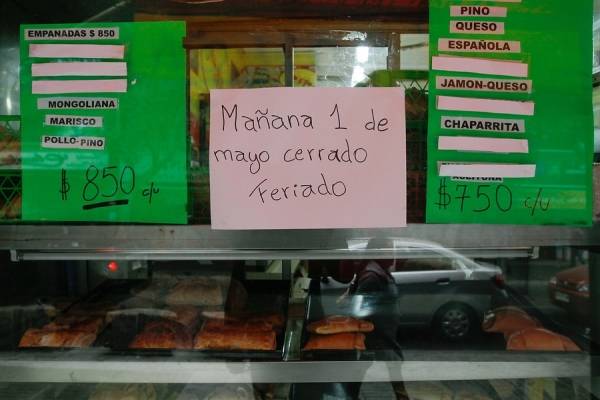 EMPANADAS $ 850
MONGOLIANA
MARISCO
POLLO-PINO
$ 850 c/u
Mañana 1 de
mayo cerrado
Feriado
PINO
QUESO
ESPAÑOLA
JAMON-QUESO
CHAPARRITA
$750 c/u